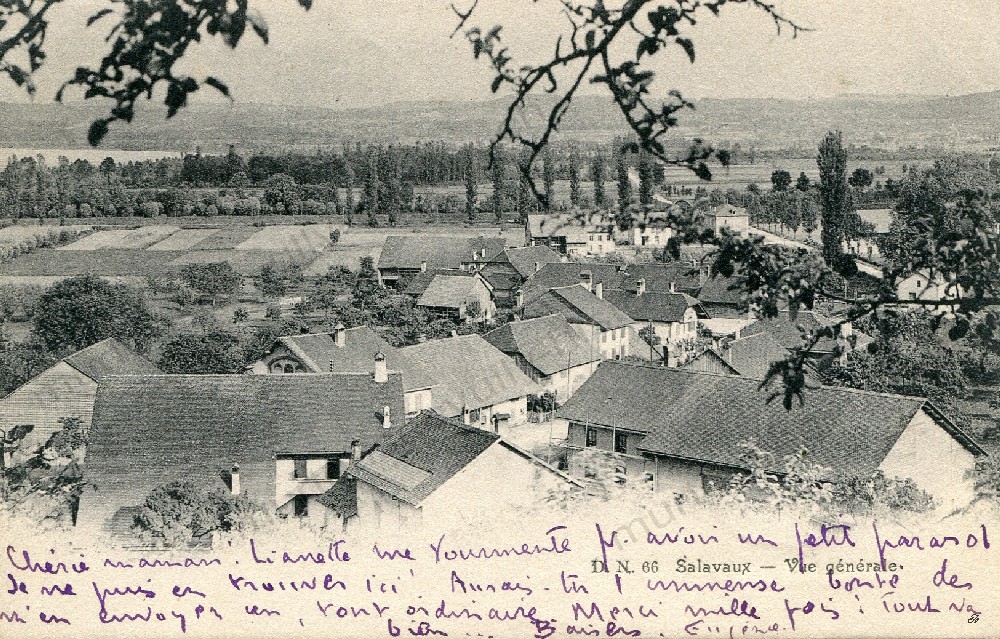 D. N. 66 Salavaux — Vue générale.
Chérie maman! Lianette me tourmente pr. avoir un petit parasol
Je ne puis en trouver ici! Aurais-tu l'immense bonté des
m'en envoyer un, tout ordinaire. Merci mille fois! Tout va
bien... Baisers. Eugène.